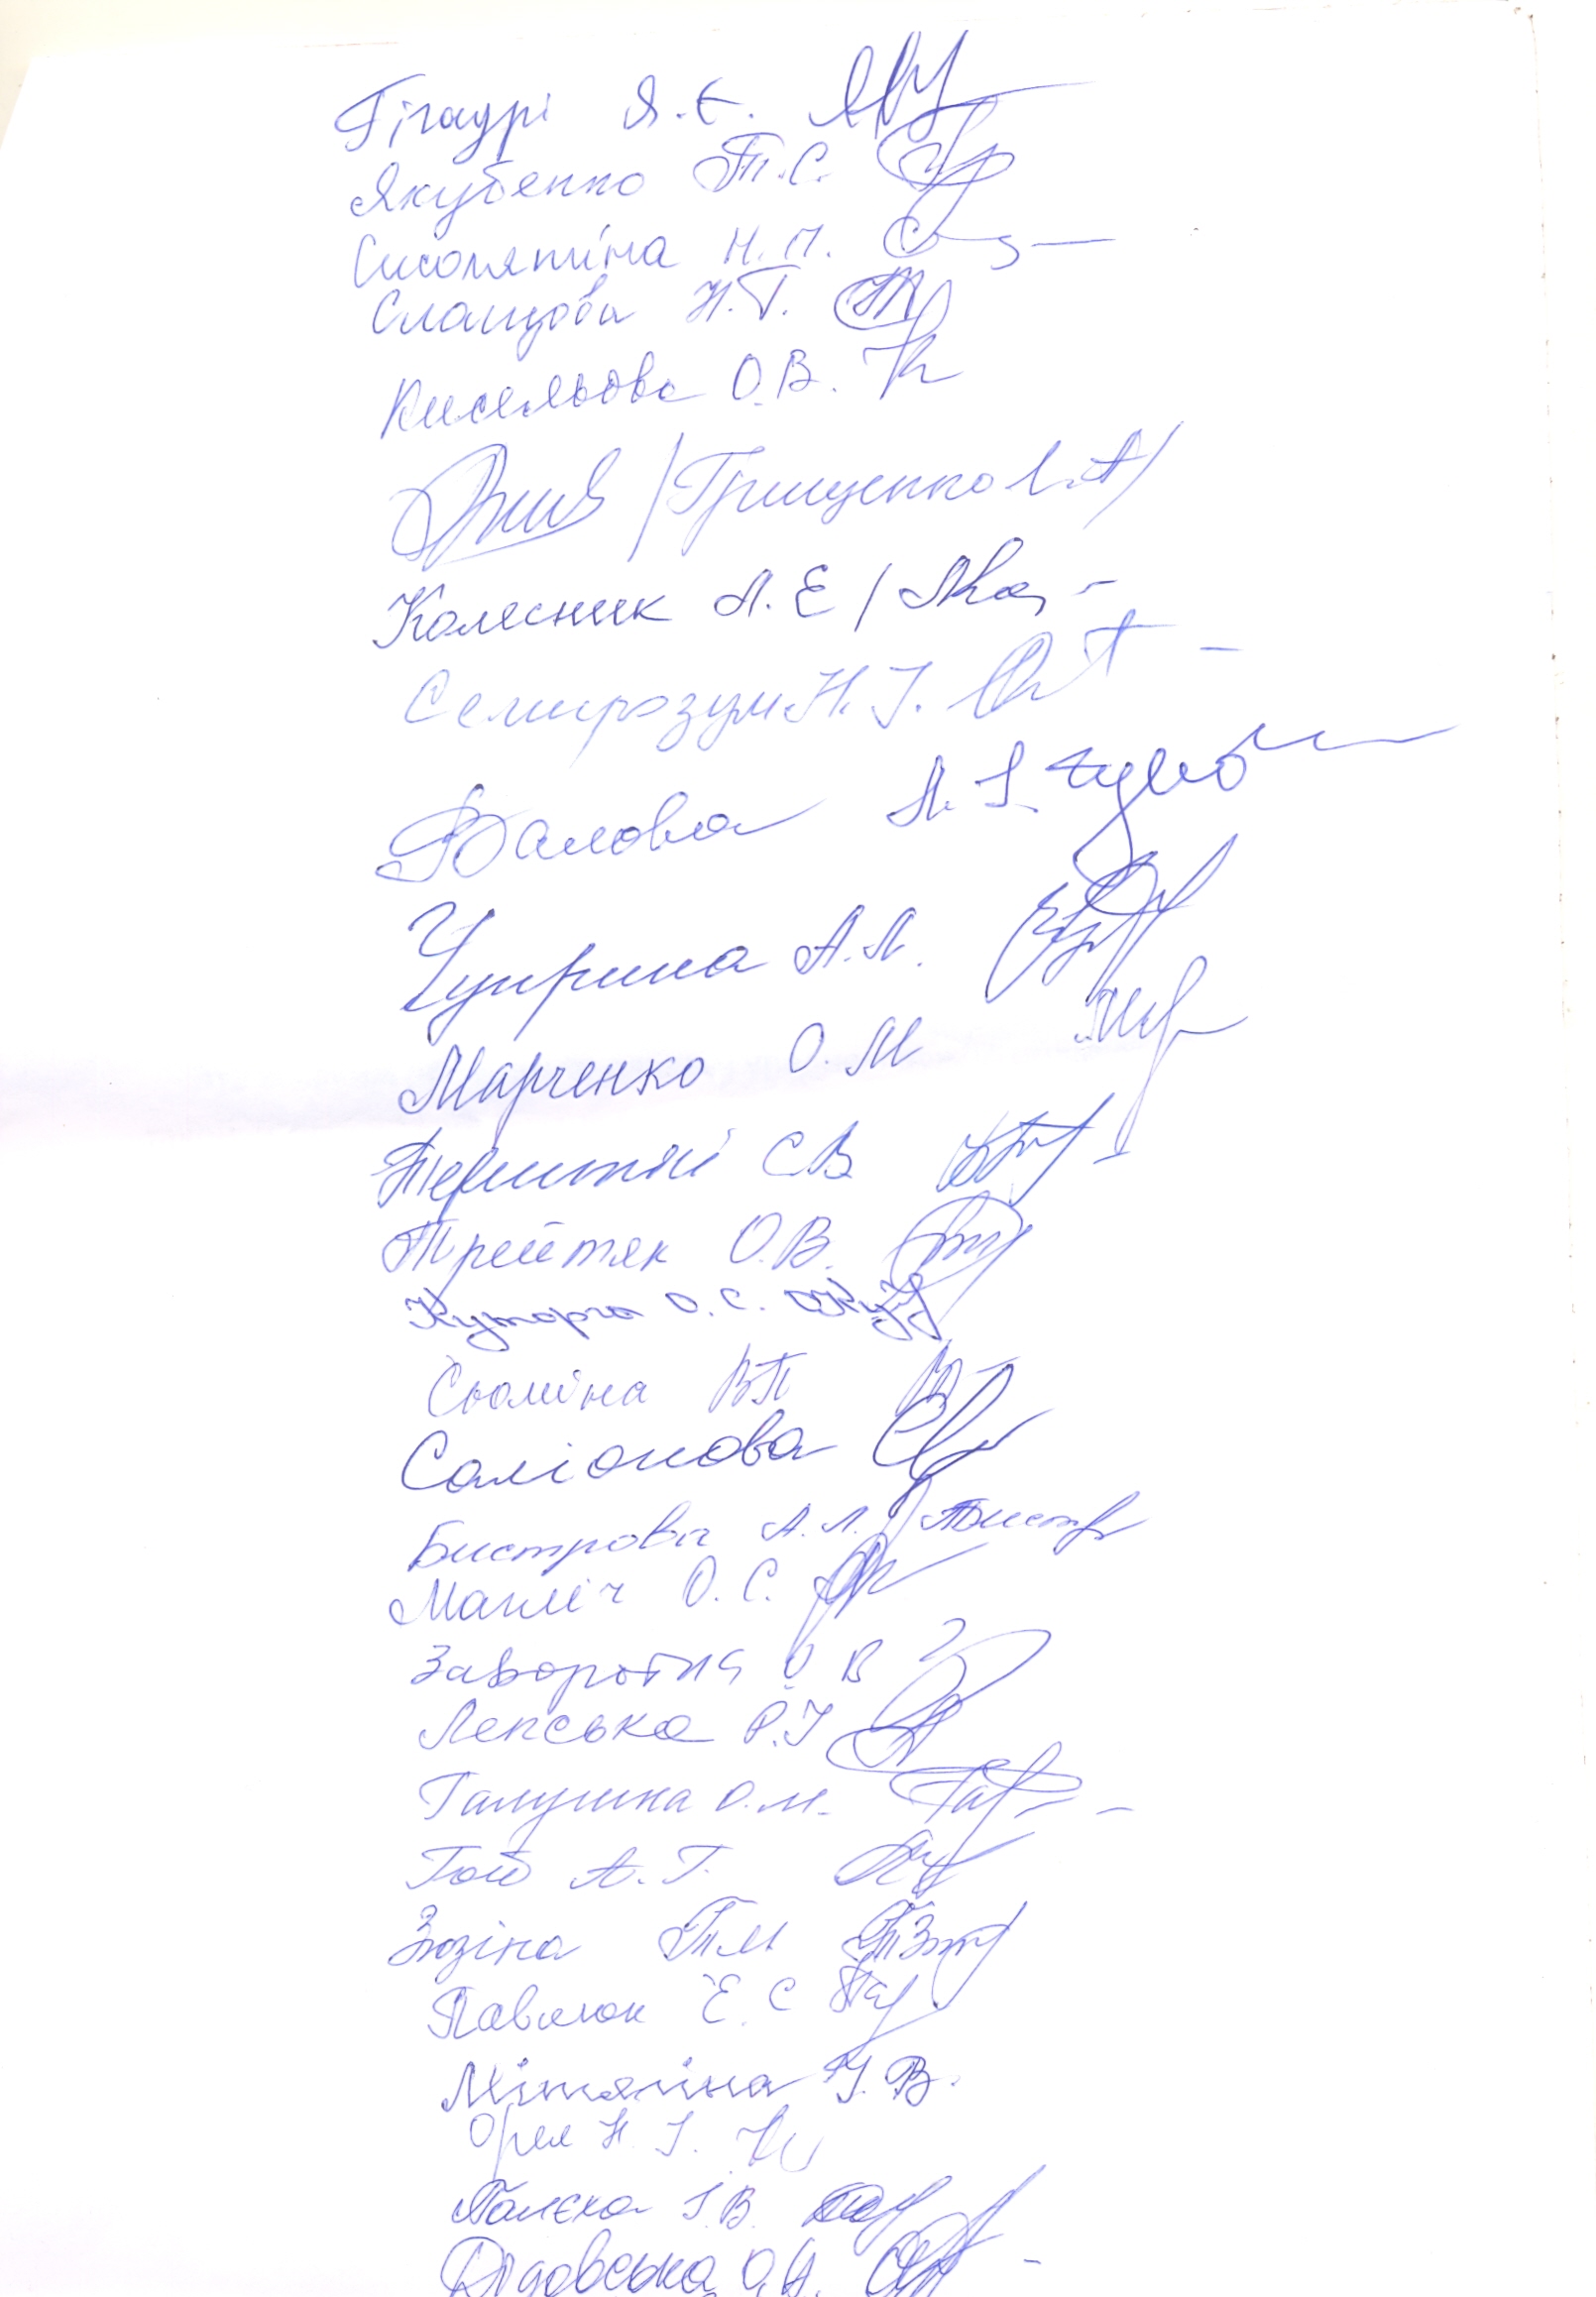 Гігаурі Я.Є.
Якубенко Т.С.
Сисолятіна Н.П.
Сланцова Н.Г.
Кисельова О.В.
/Грищенко І.А/
Колесник Л.Е /
Семирозум Н.І.
Л.І.
Чуприна А.Л.
Марченко О.М
С В
Трейтяк О.В.
Куторга О.С.
Сьоміна В П
Саліонова
Бистрова А.Л.
О.С.
Заворотна О В
Лепська Р.І
Галушка О.М.
Гой А.Г.
Зюзіна Т М
Павлюк Е.С
Мітяніна І.В.
Орел Н.І.
Палєха І.В.
О.А.